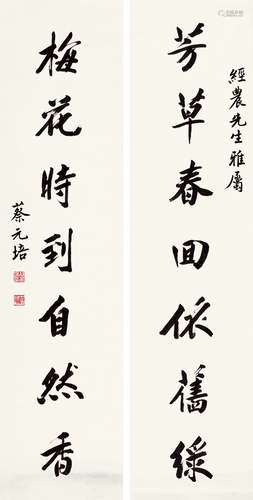 經農先生雅屬
芳草春回依舊綠
梅花時到自然香
蔡元培